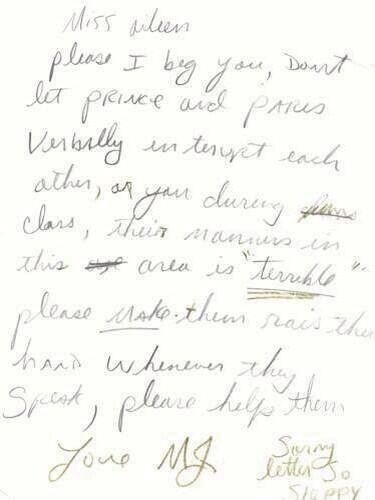 Miss Aileen
please I beg you, Dont
let PRINCE and PARIS
Verbally interupt each
other, or you during
class, their manners in
this area is "terrible"
please MAKE them rais their
hand whenever they
Speak, please helps them
Love MJ
Sorry
letter so
Sloppy